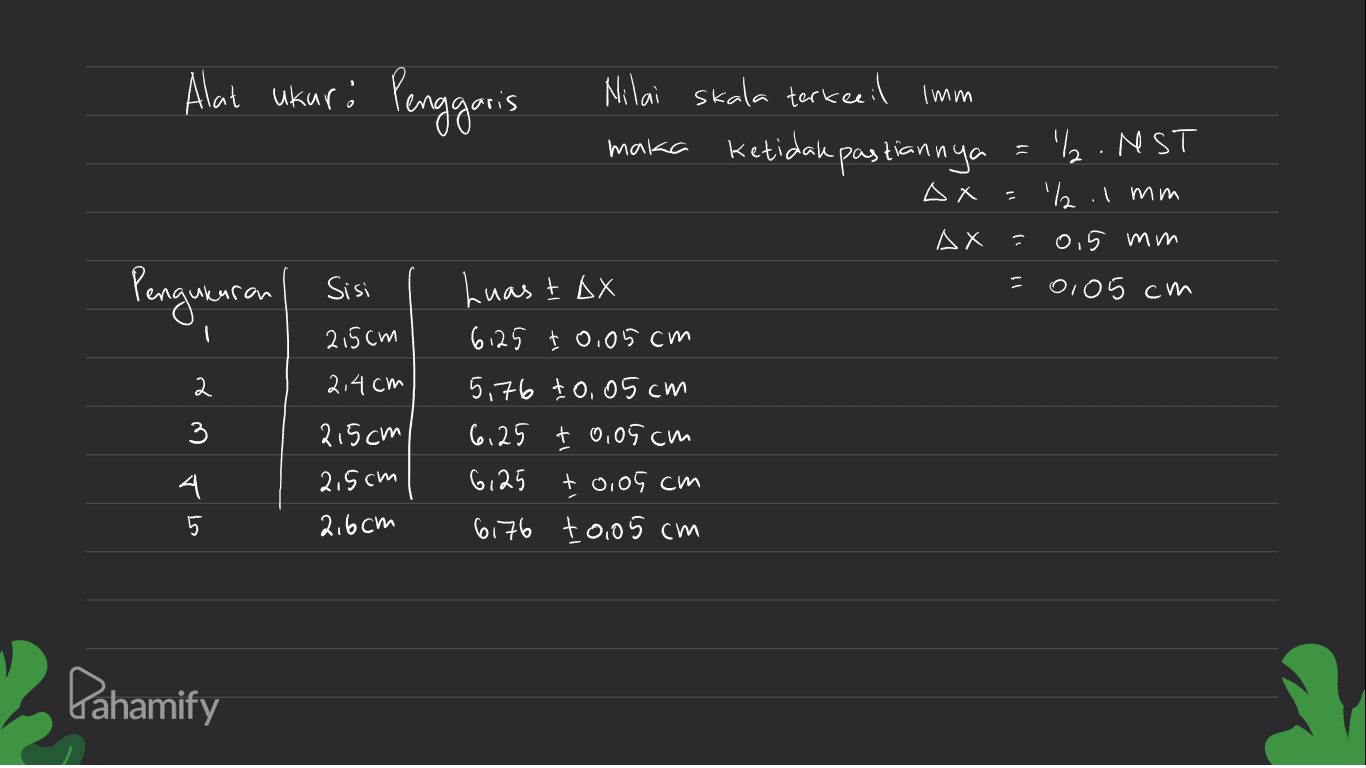 Alat ukur : Penggaris Nilai skala terkecil 1mm
maka ketidakpastiannya = 1/2 . NST
Δx = 1/2 . 1 mm
Δx = 0,5 mm
= 0,05 cm
Pengukuran Sisi Luas ± Δx
1 2,5cm 6,25 ± 0,05 cm
2 2,4 cm 5,76 ± 0,05 cm
3 2,5cm 6,25 ± 0,05 cm
4 2,5 cm 6,25 ± 0,05 cm
5 2,6cm 6,76 ± 0,05 cm
Pahamify